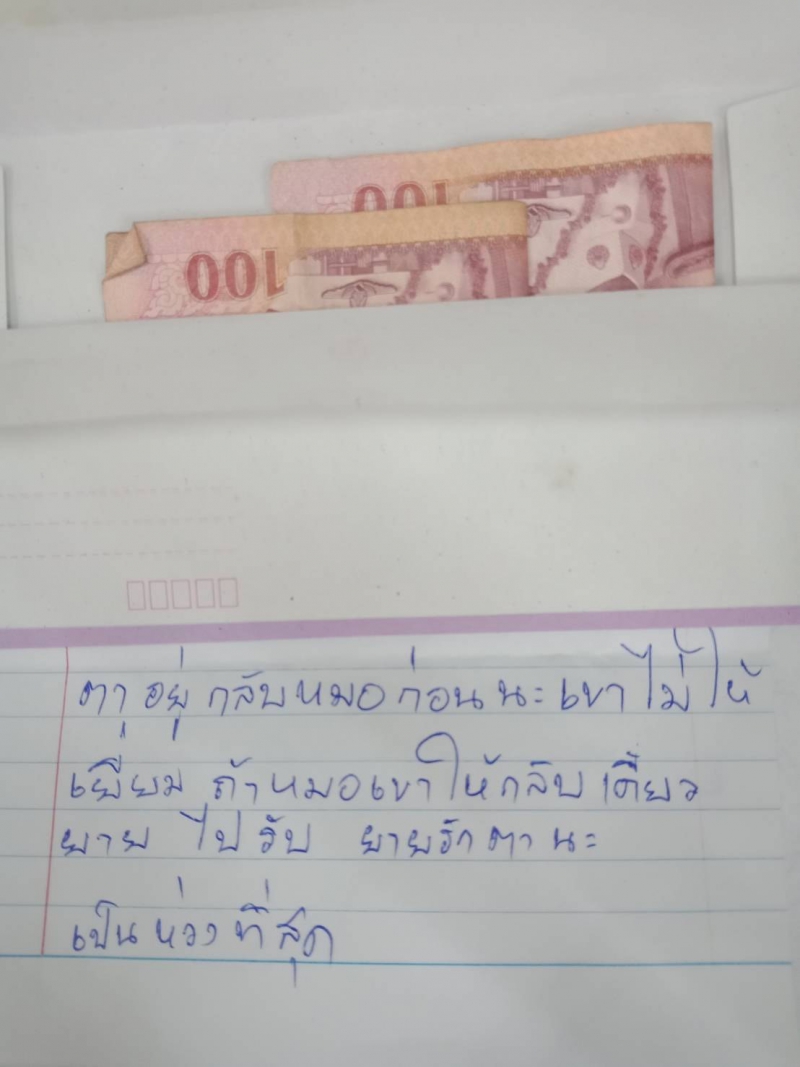 100
100
ตาอยู่ กลับหมอก่อนนะเขาไม่ให้
เยี่ยม ถ้าหมอเขาให้กลับเดี๋ยว
ยาย ไปรับ ยายรักตานะ
เป็นห่วงที่สุด